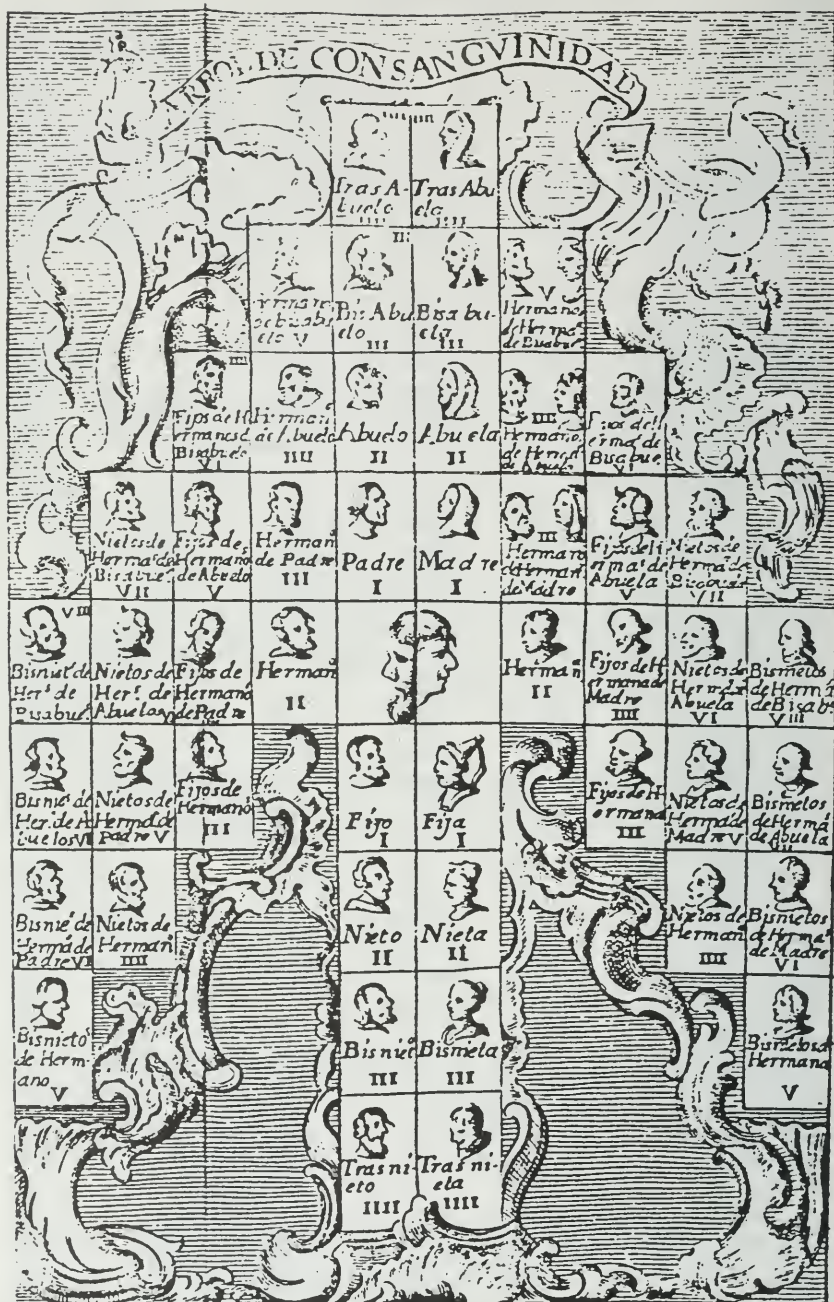 ARBOL DE CONSANGVINIDAD
Tras A-
buelo
IIII
Tras Abu
ela
IIII
elo V
Bis Abu
elo
III
Bisabu-
ela
III
V
Hermano
de Herma.
de Bisabue
Fijos de H
ermanos d
Bisabuelo
VI
Herman
de Abuelo
IIII
Abuelo
II
Abuela
II
IIII
Hermano
de Herma
de Abuela
Fijos de H
erma. de
Bisabue
VI
Nietos de
Herma. de
Bisabue
VII
Fijos de
Hermano
de Abuelo
V
Herman
de Padre
III
Padre
I
Madre
I
III
Hermano
de Herman
de Madre
Fijos de H
erma. de
Abuela
V
Nietos de
Herma. de
Bisabue
VII
VIII
Bisniet. de
Her. de
Bisabue.
Nietos de
Her. de
Abuelos VI
Fijos de
Hermano
de Padre
IIII
Herman
II
Herman
II
Fijos de H
ermana de
Madre
IIII
Nietos de
Herma. de
Abuela
VI
Bisnietos
de Herma
de Bisab
VIII
Bisnie. de
Her. de A
buelos VII
Nietos de
Herma. de
Padre V
Fijos de
Hermano
III
Fijo
I
Fija
I
Fijos de H
ermana
III
Nietos de
Herma. de
Madre V
Bisnietos
de Herma
de Abuela
VII
Bisnie. de
Herma. de
Padre VI
Nietos de
Herman
IIII
Nieto
II
Nieta
II
Nietos de
Herman
IIII
Bisnietos
de Herma.
de Madre
VI
Bisnieto
de Herm-
ano
V
Bisniet
III
Bisnieta
III
Bisnietos d
Hermana
V
Trasni-
eto
IIII
Trasni-
eta
IIII